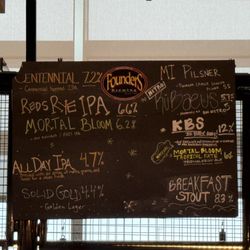 CENTENNIAL 7.2%
RED'S RYE IPA 6.6%
MORTAL BLOOM 6.2%
ALL DAY IPA 4.7%
SOLID GOLD 4.4%
Golden Lager
FOUNDERS
BREWING
MI PILSNER
NITRO
RUBAEUS
KBS
12%
MORTAL BLOOM
TROPICAL HAZE
BREAKFAST
STOUT 8.3%